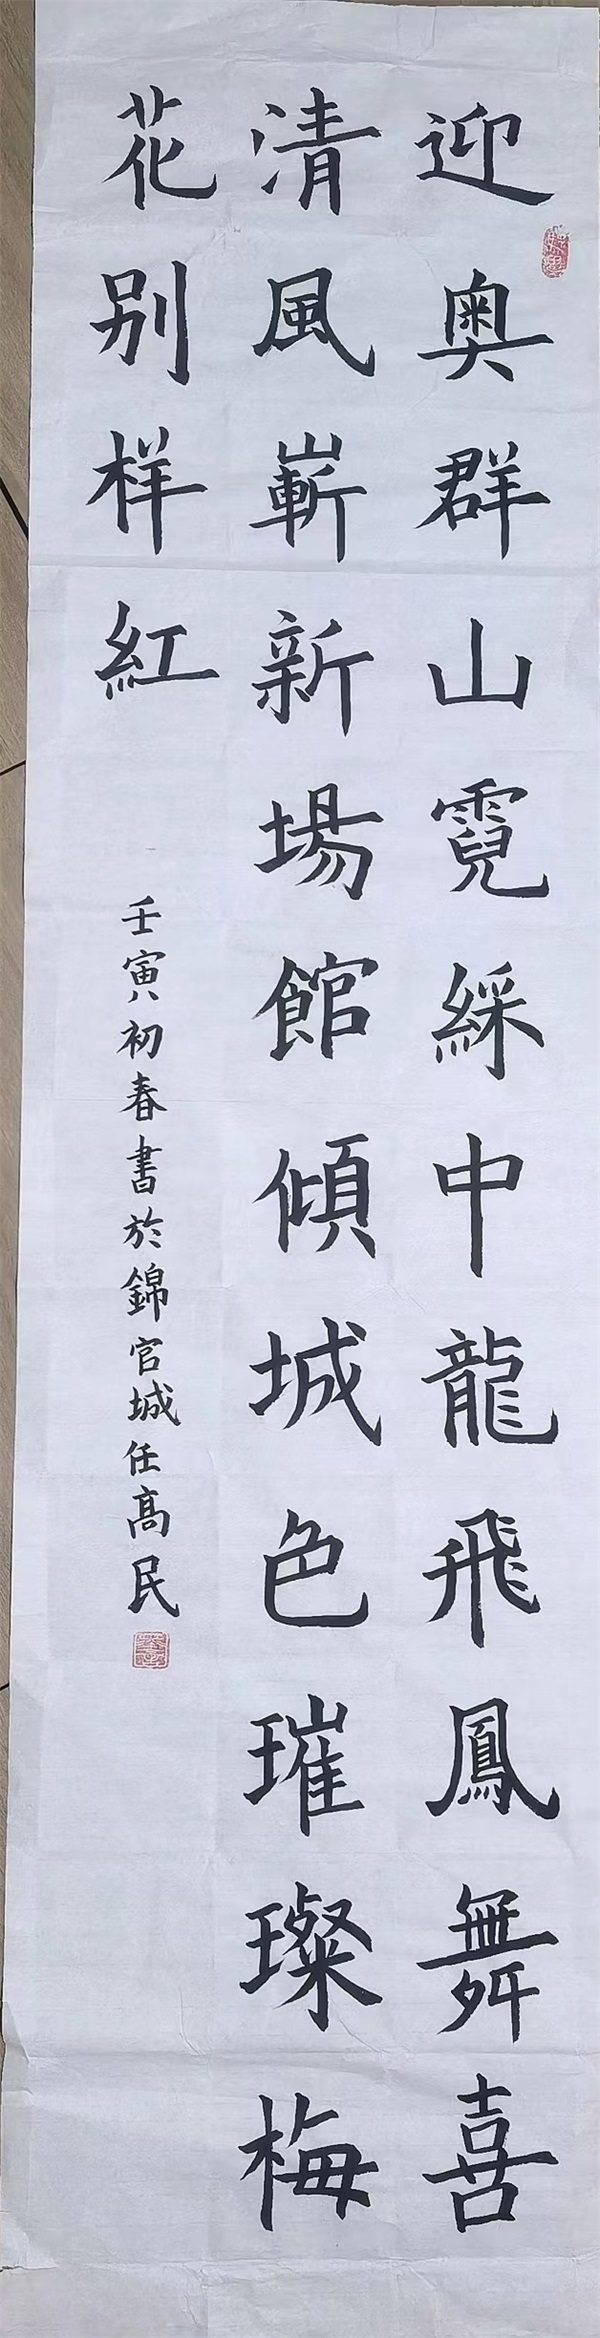 迎奥群山霓綵中龍飛鳳舞喜
清風嶄新場館傾城色璀璨梅
花别样紅
壬寅初春書於錦官城任高民